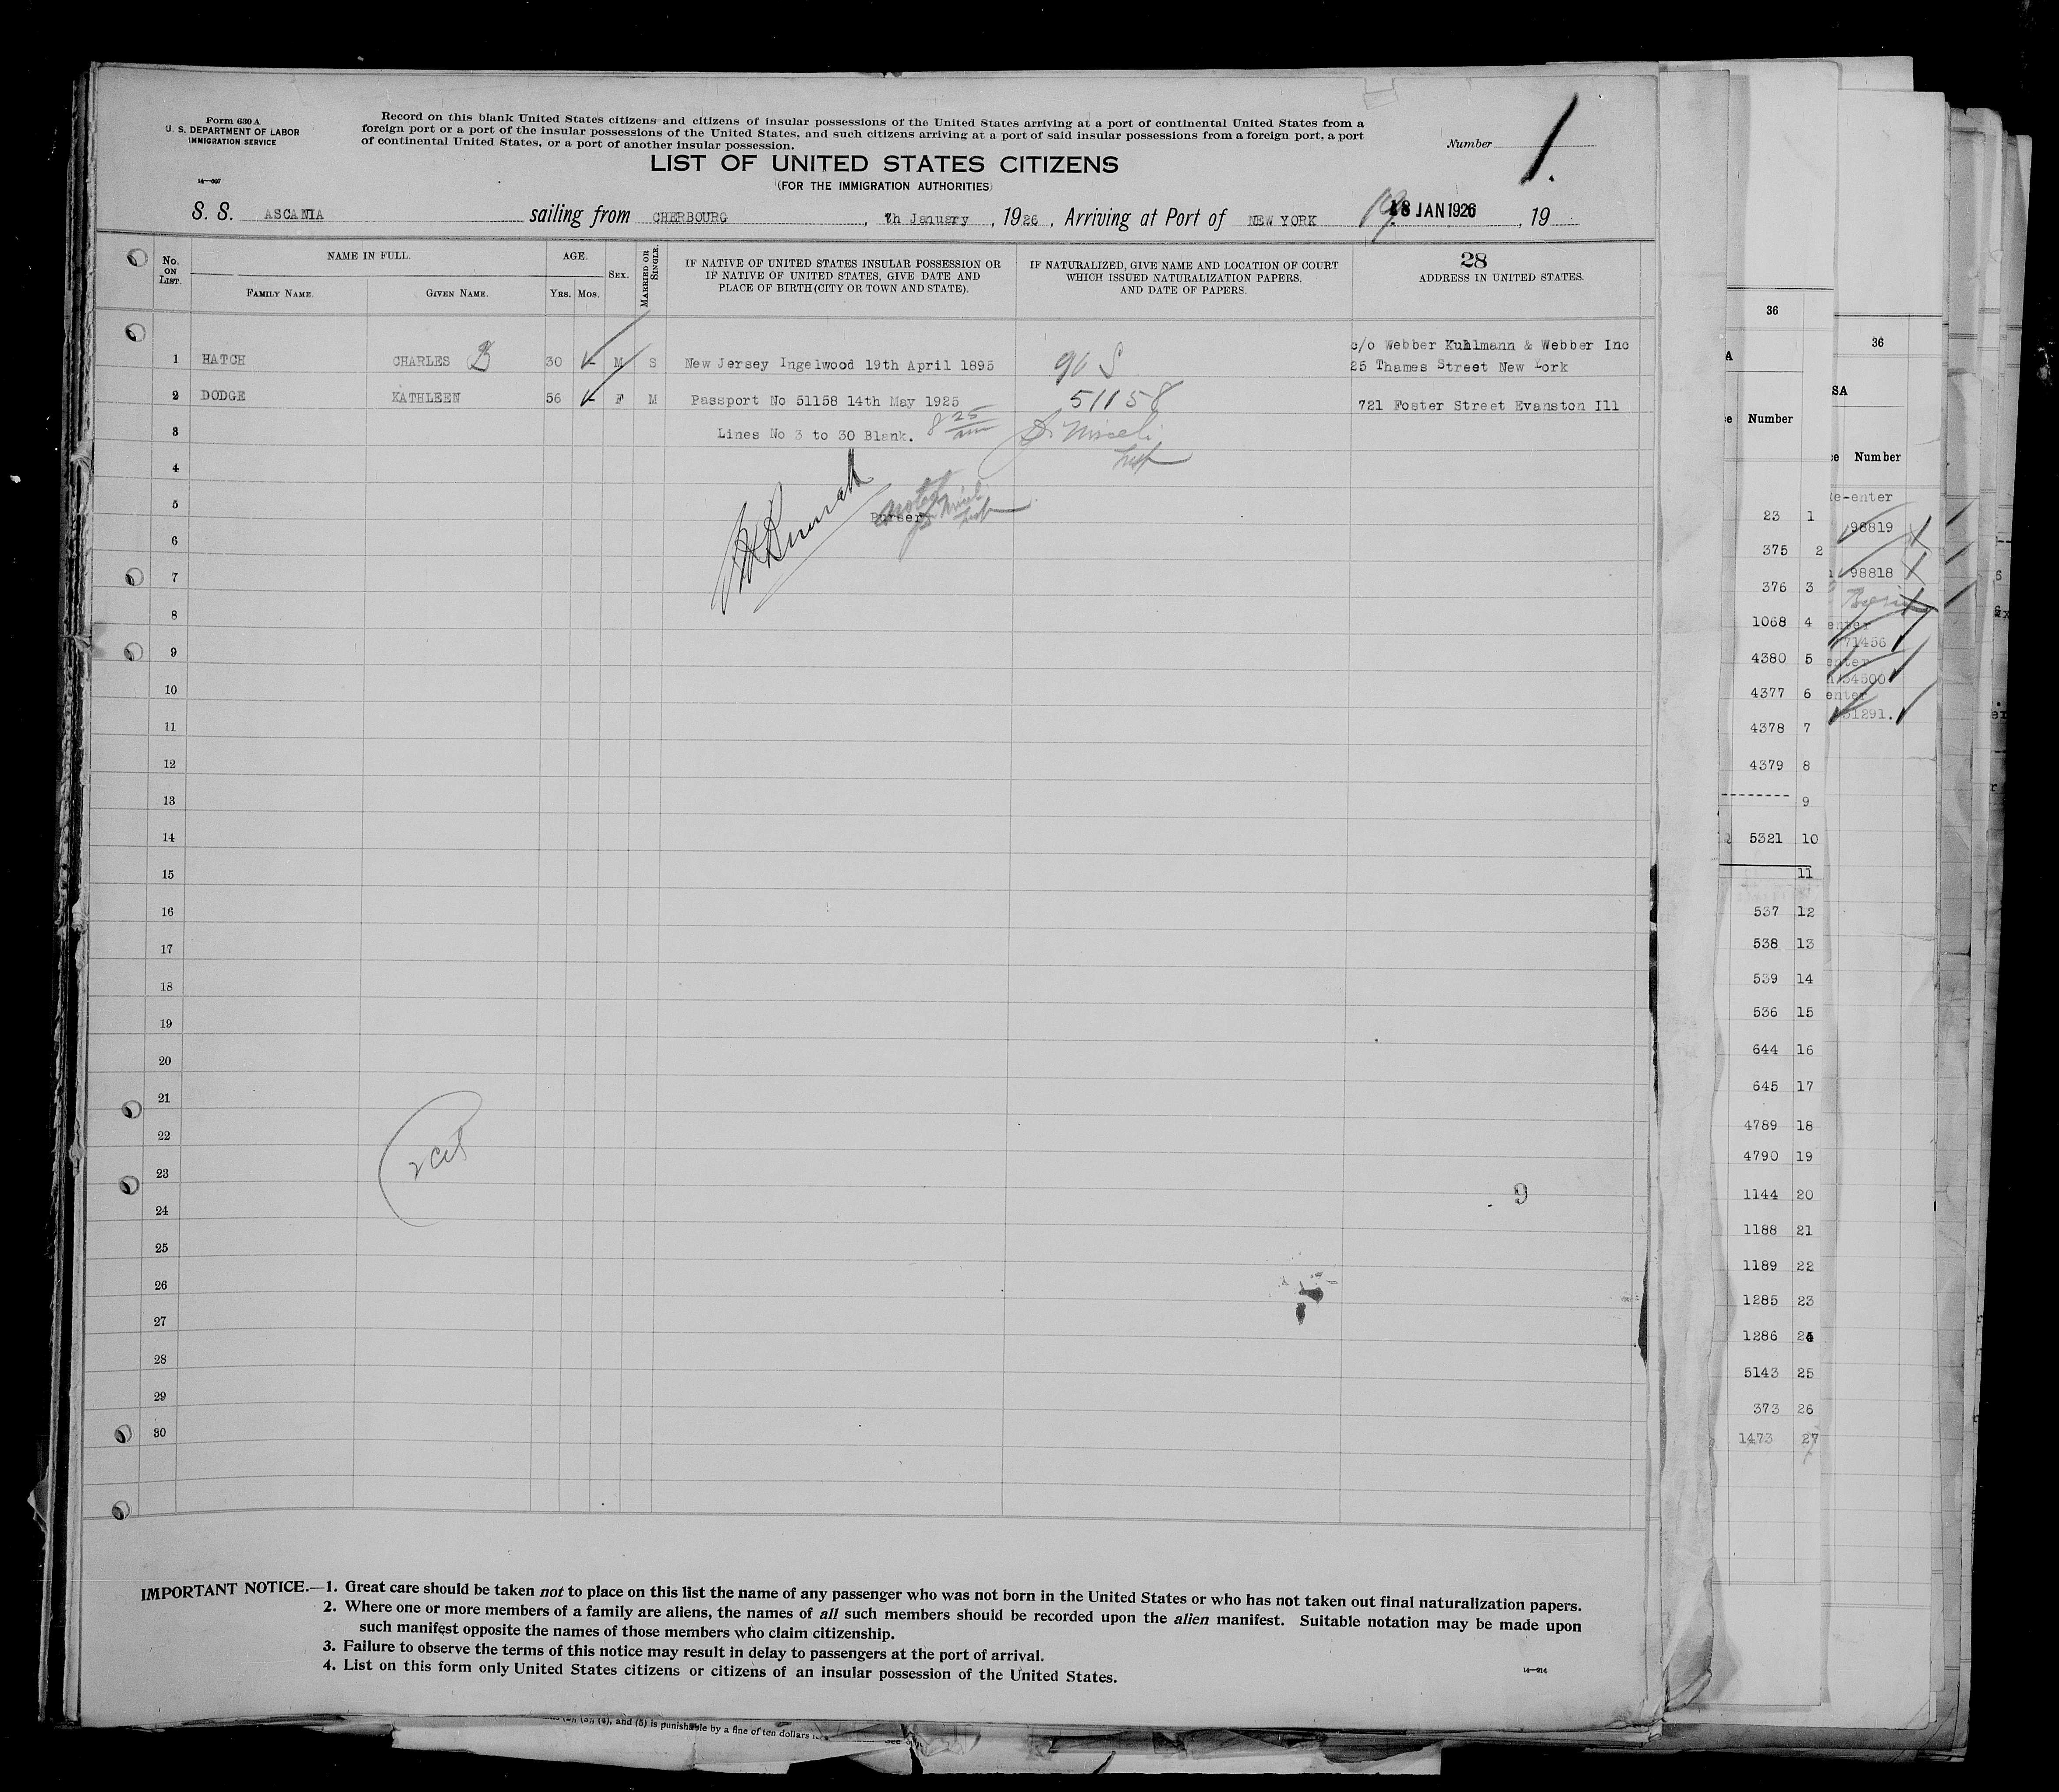 Form 630 A
U. S. DEPARTMENT OF LABOR
IMMIGRATION SERVICE
14—607
Record on this blank United States citizens and citizens of insular possessions of the United States arriving at a port of continental United States from a
foreign port or a port of the insular possessions of the United States, and such citizens arriving at a port of said insular possessions from a foreign port, a port
of continental United States, or a port of another insular possession.
Number 1.
LIST OF UNITED STATES CITIZENS
(FOR THE IMMIGRATION AUTHORITIES)
S. S. ASCANIA sailing from CHERBOURG, 7h January, 1926, Arriving at Port of NEW YORK 19 18 JAN 1926, 19
No. ON LIST.
NAME IN FULL.
FAMILY NAME. GIVEN NAME.
AGE.
YRS. MOS.
SEX.
MARRIED OR SINGLE.
IF NATIVE OF UNITED STATES INSULAR POSSESSION OR
IF NATIVE OF UNITED STATES, GIVE DATE AND
PLACE OF BIRTH (CITY OR TOWN AND STATE).
IF NATURALIZED, GIVE NAME AND LOCATION OF COURT
WHICH ISSUED NATURALIZATION PAPERS,
AND DATE OF PAPERS.
28
ADDRESS IN UNITED STATES.
c/o Webber Kuhlmann & Webber Inc
1 HATCH CHARLES B 30 - M S New Jersey Ingelwood 19th April 1895 25 Thames Street New York
2 DODGE KATHLEEN 56 - F M Passport No 51158 14th May 1925 51158 721 Foster Street Evanston Ill
3 Lines No 3 to 30 Blank. 8 25 am
4
5 Purser
6
7
8
9
10
11
12
13
14
15
16
17
18
19
20
21
22
23
9
24
25
26
27
28
29
30
IMPORTANT NOTICE.—1. Great care should be taken not to place on this list the name of any passenger who was not born in the United States or who has not taken out final naturalization papers.
2. Where one or more members of a family are aliens, the names of all such members should be recorded upon the alien manifest. Suitable notation may be made upon
such manifest opposite the names of those members who claim citizenship.
3. Failure to observe the terms of this notice may result in delay to passengers at the port of arrival.
4. List on this form only United States citizens or citizens of an insular possession of the United States.
14—914
(3), (4), and (5) is punishable by a fine of ten dollars
36
A
Number
23 1
375 2
376 3
1068 4
4380 5
4377 6
4378 7
4379 8
9
5321 10
11
537 12
538 13
539 14
536 15
644 16
645 17
4789 18
4790 19
1144 20
1188 21
1189 22
1285 23
1286 24
5143 25
373 26
1473 27
36
SA
Number
Re-enter
98819
98818
enter
71456
enter
54500
enter
51291.